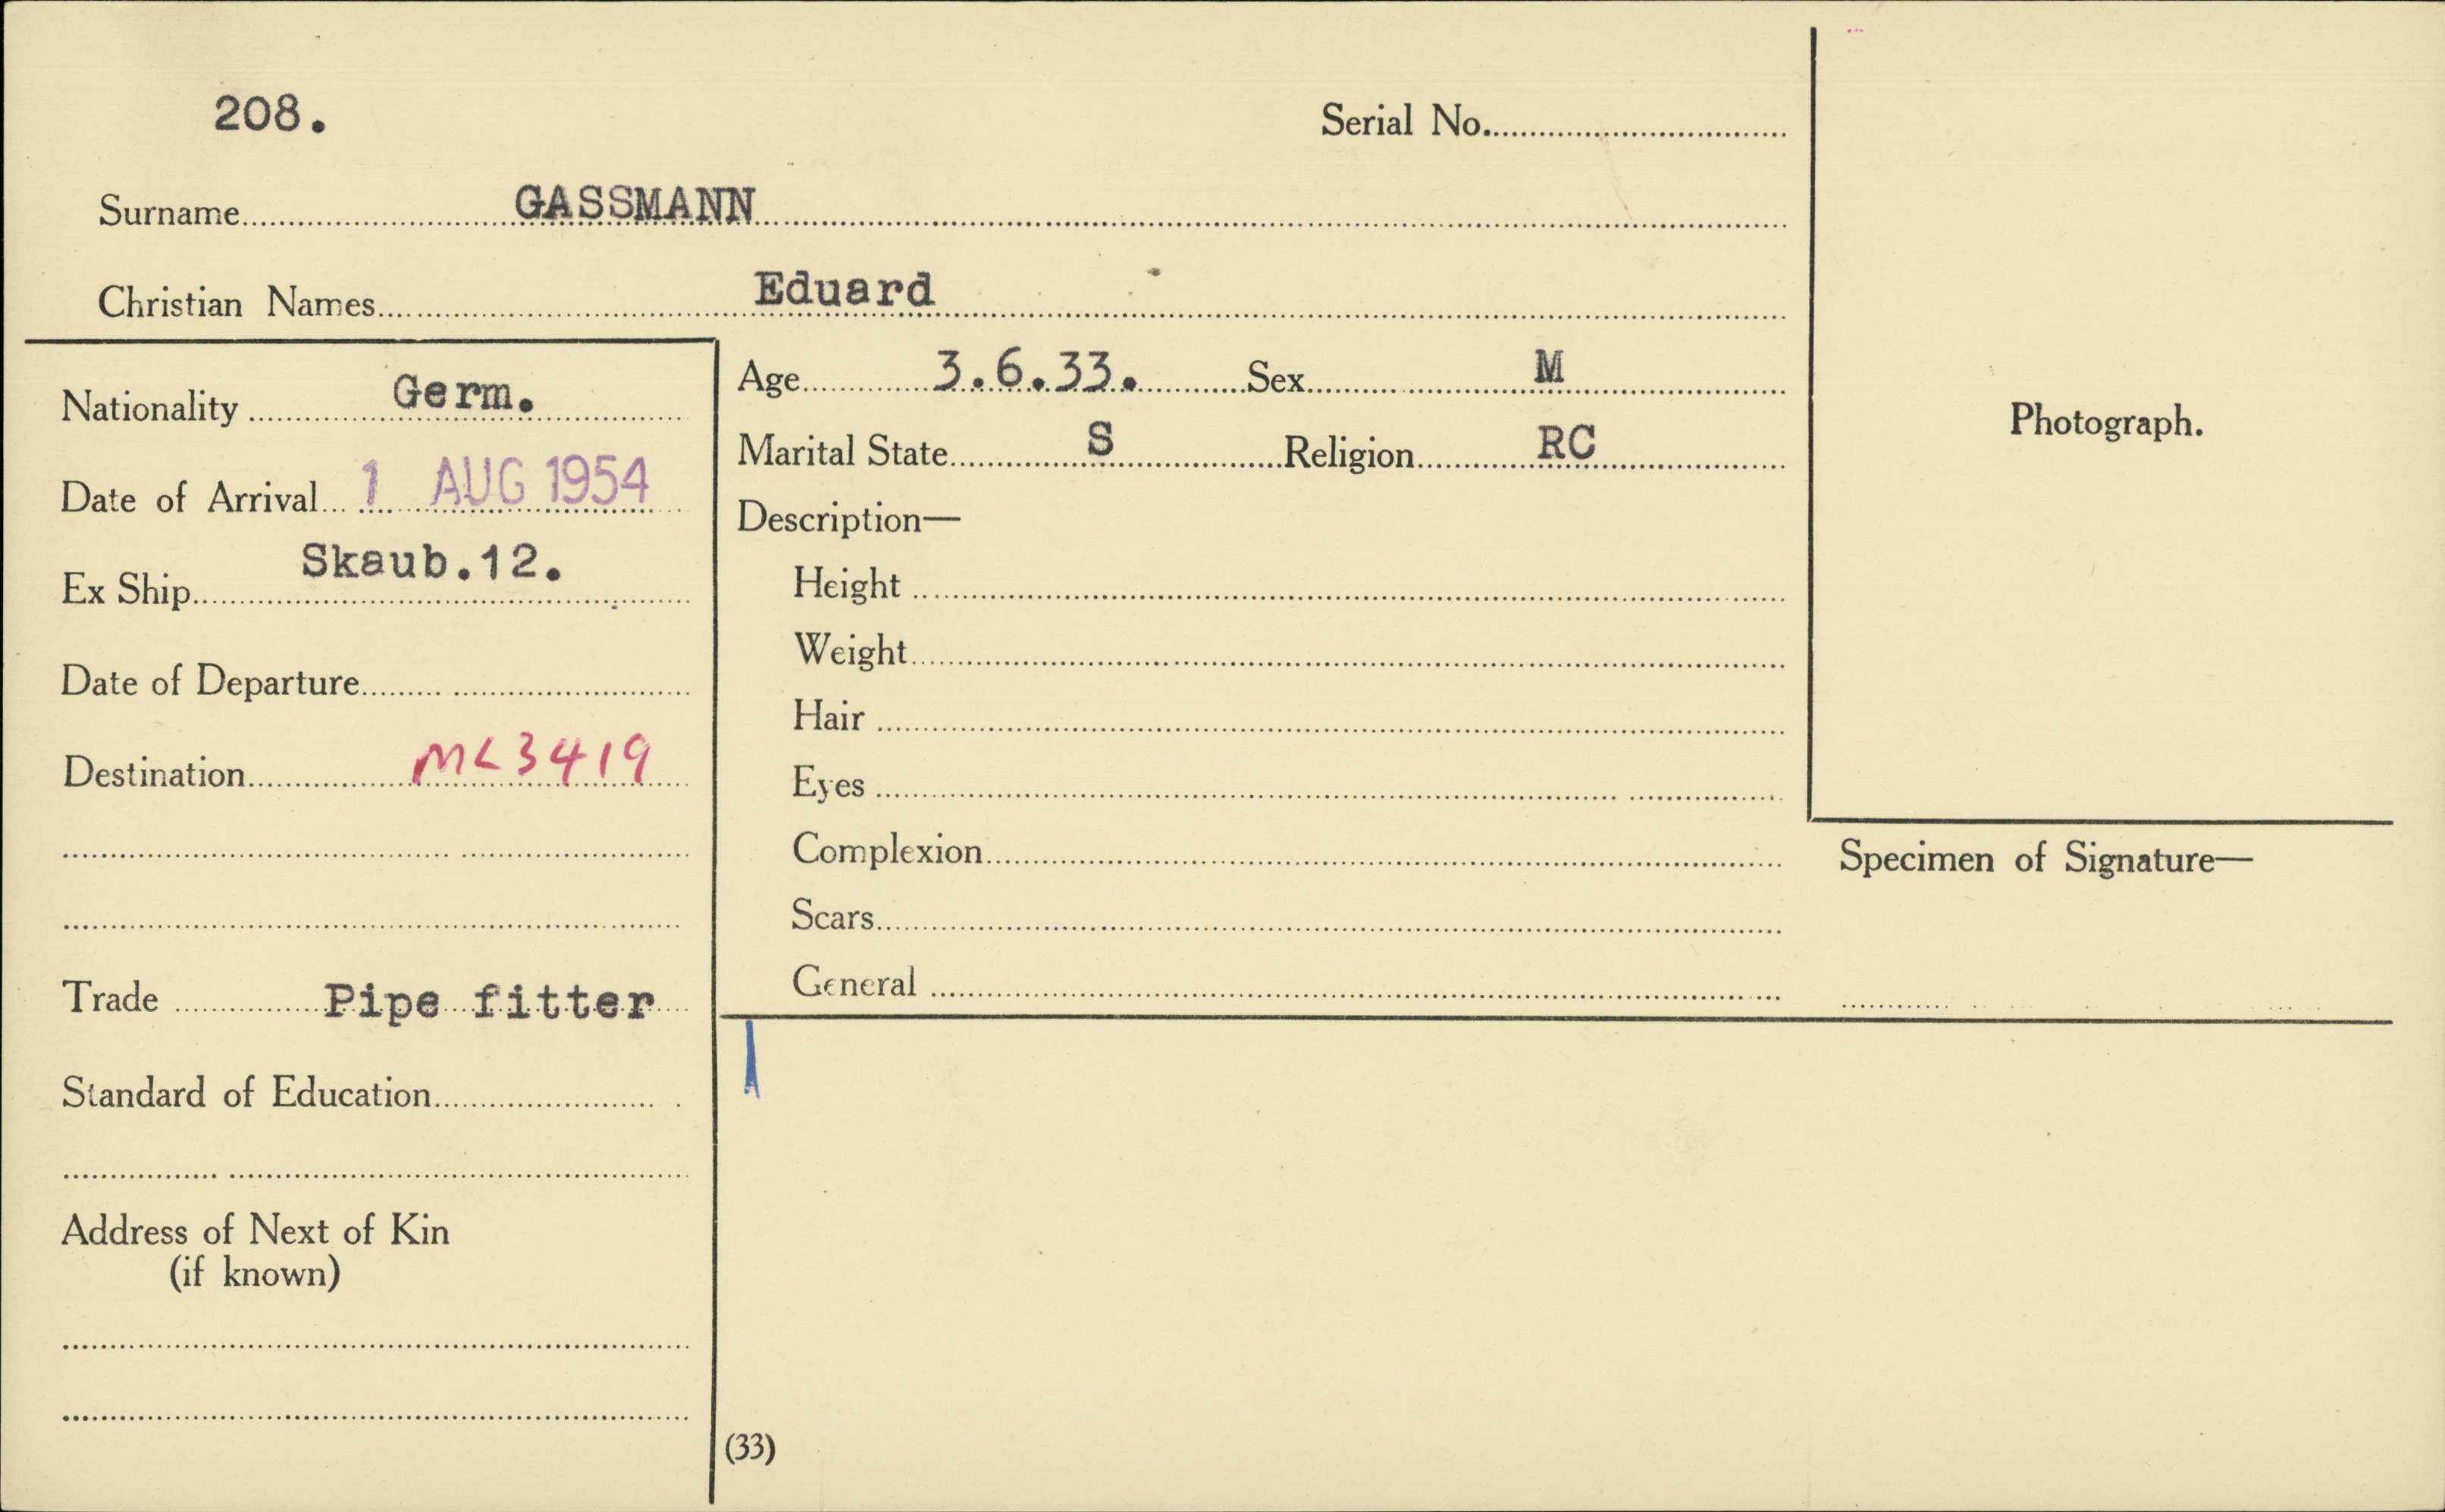 208.
Serial No.
Surname GASSMANN
Christian Names Eduard
Nationality Germ.
Date of Arrival 1 AUG 1954
Ex Ship Skaub.12.
Date of Departure
Destination ML3419
Trade Pipe fitter
Standard of Education
Address of Next of Kin
(if known)
Age 3.6.33. Sex M
Marital State S Religion RC
Description—
Height
Weight
Hair
Eyes
Complexion
Scars
General
Photograph.
Specimen of Signature—
(33)